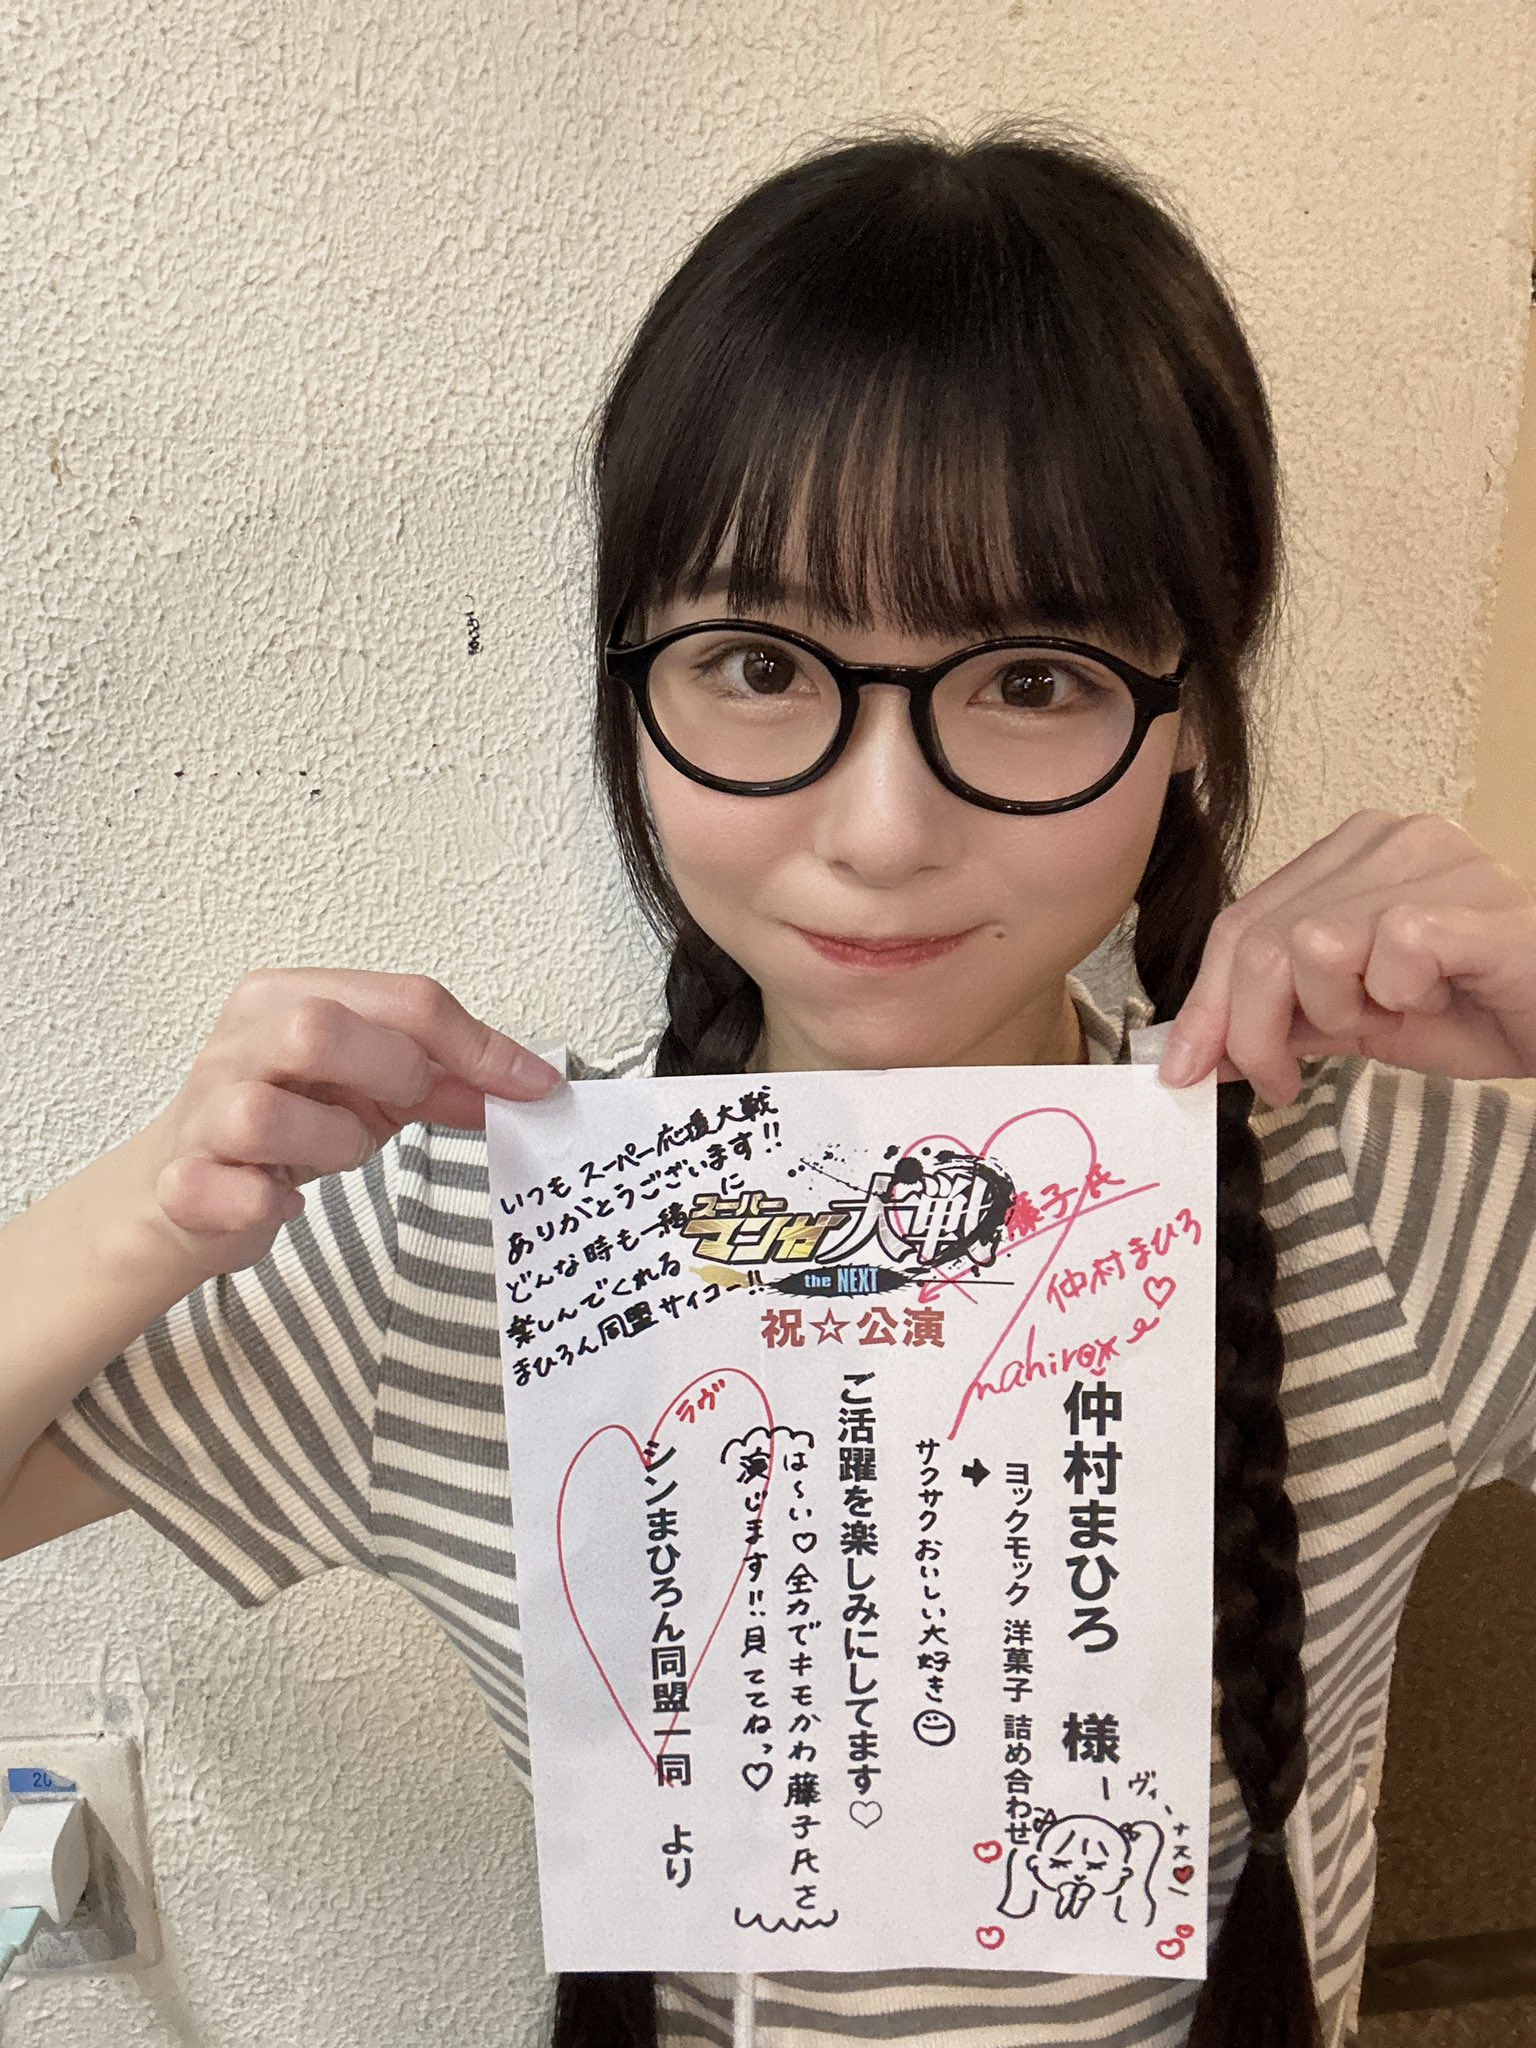 いつもスーパー応援大戦
ありがとうございます!!
どんな時も一緒に
楽しんでくれる
まひろん同盟サイコー!!
スーパー
マンガ大戦
the NEXT
祝☆公演
藤子氏
仲村まひろ
mahiro
仲村まひろ 様
ヨックモック 洋菓子 詰め合わせ
➡
サクサクおいしい大好き
ご活躍を楽しみにしてます♡
は〜い♡全力でキモかわ藤子氏さ
演じます!!見ててねっ♡
ラヴ
シンまひろん同盟一同 より
ーヴィーナスー
20